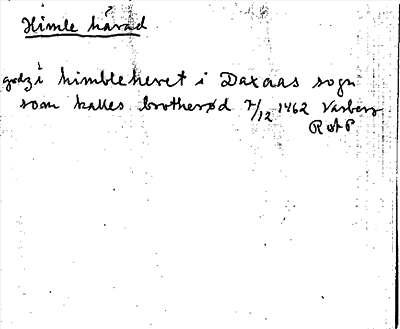 Himle härad
godz i himbleheret i Daxaas sogn
som kalles brotherød 7/12 1462 Varberg
R A P